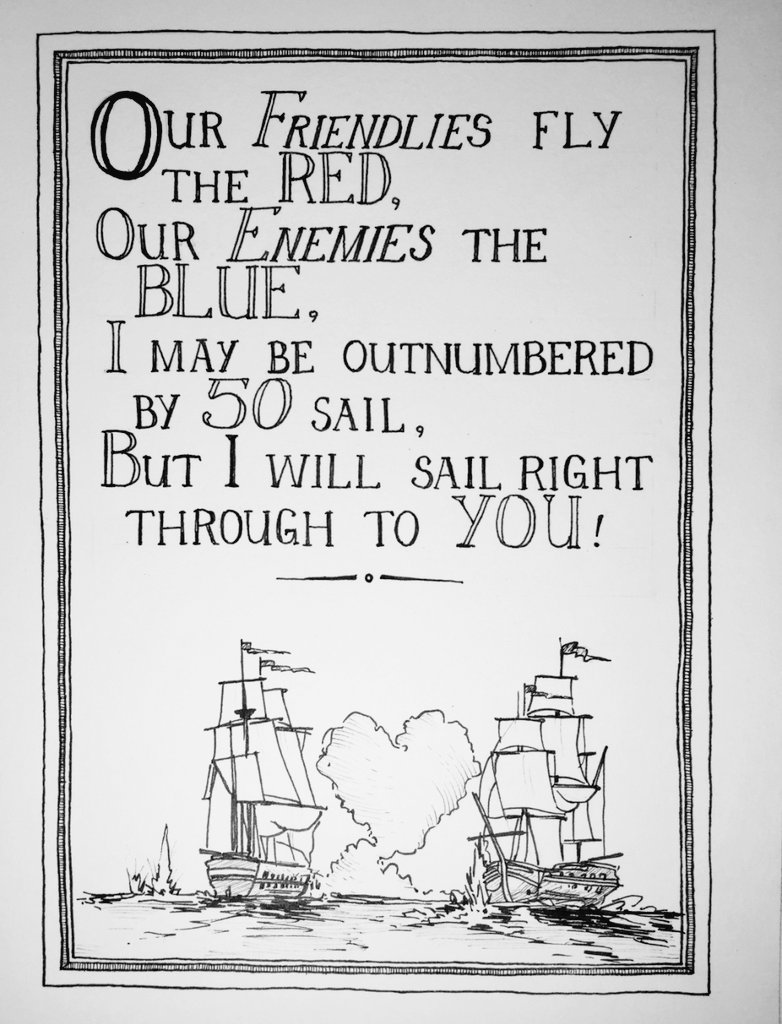 Our Friendlies fly
the RED,
Our Enemies the
BLUE,
I may be outnumbered
by 50 sail,
But I will sail right
through to YOU!